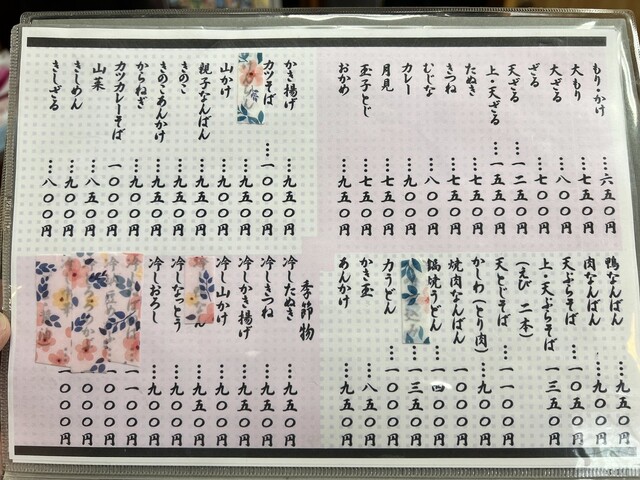 もり・かけ …六五〇円
大もり …七五〇円
大ざる …八〇〇円
ざる …七〇〇円
天ざる …一二五〇円
上・天ざる …一五五〇円
たぬき …七五〇円
きつね …七五〇円
むじな …八〇〇円
カレー …九〇〇円
月見 …七五〇円
玉子とじ …七五〇円
おかめ …九五〇円
かき揚げ …九五〇円
カツそば …一〇〇〇円
…九五〇円
山かけ …九〇〇円
親子なんばん …九〇〇円
きのこ …九〇〇円
きのこあんかけ …九五〇円
からねぎ …九〇〇円
カツカレーそば …一〇〇〇円
山菜 …八五〇円
きしめん …九〇〇円
きしざる …八〇〇円
鴨なんばん …九五〇円
肉なんばん …九〇〇円
天ぷらそば …一〇五〇円
上・天ぷらそば …一三五〇円
(えび 二本)
天とじそば …一一〇〇円
かしわ(とり肉) …九〇〇円
焼肉なんばん …一〇〇〇円
鍋焼うどん …一四〇〇円
…一三五〇円
力うどん …一〇〇〇円
かき玉 …八五〇円
あんかけ …九五〇円
季節物
冷したぬき …九五〇円
冷しきつね …九五〇円
冷しかき揚げ …九〇〇円
冷し山かけ …九〇〇円
…九五〇円
冷しなっとう …九〇〇円
冷しおろし …九〇〇円
一一〇〇円
一〇〇〇円
一〇〇〇円
一〇〇〇円